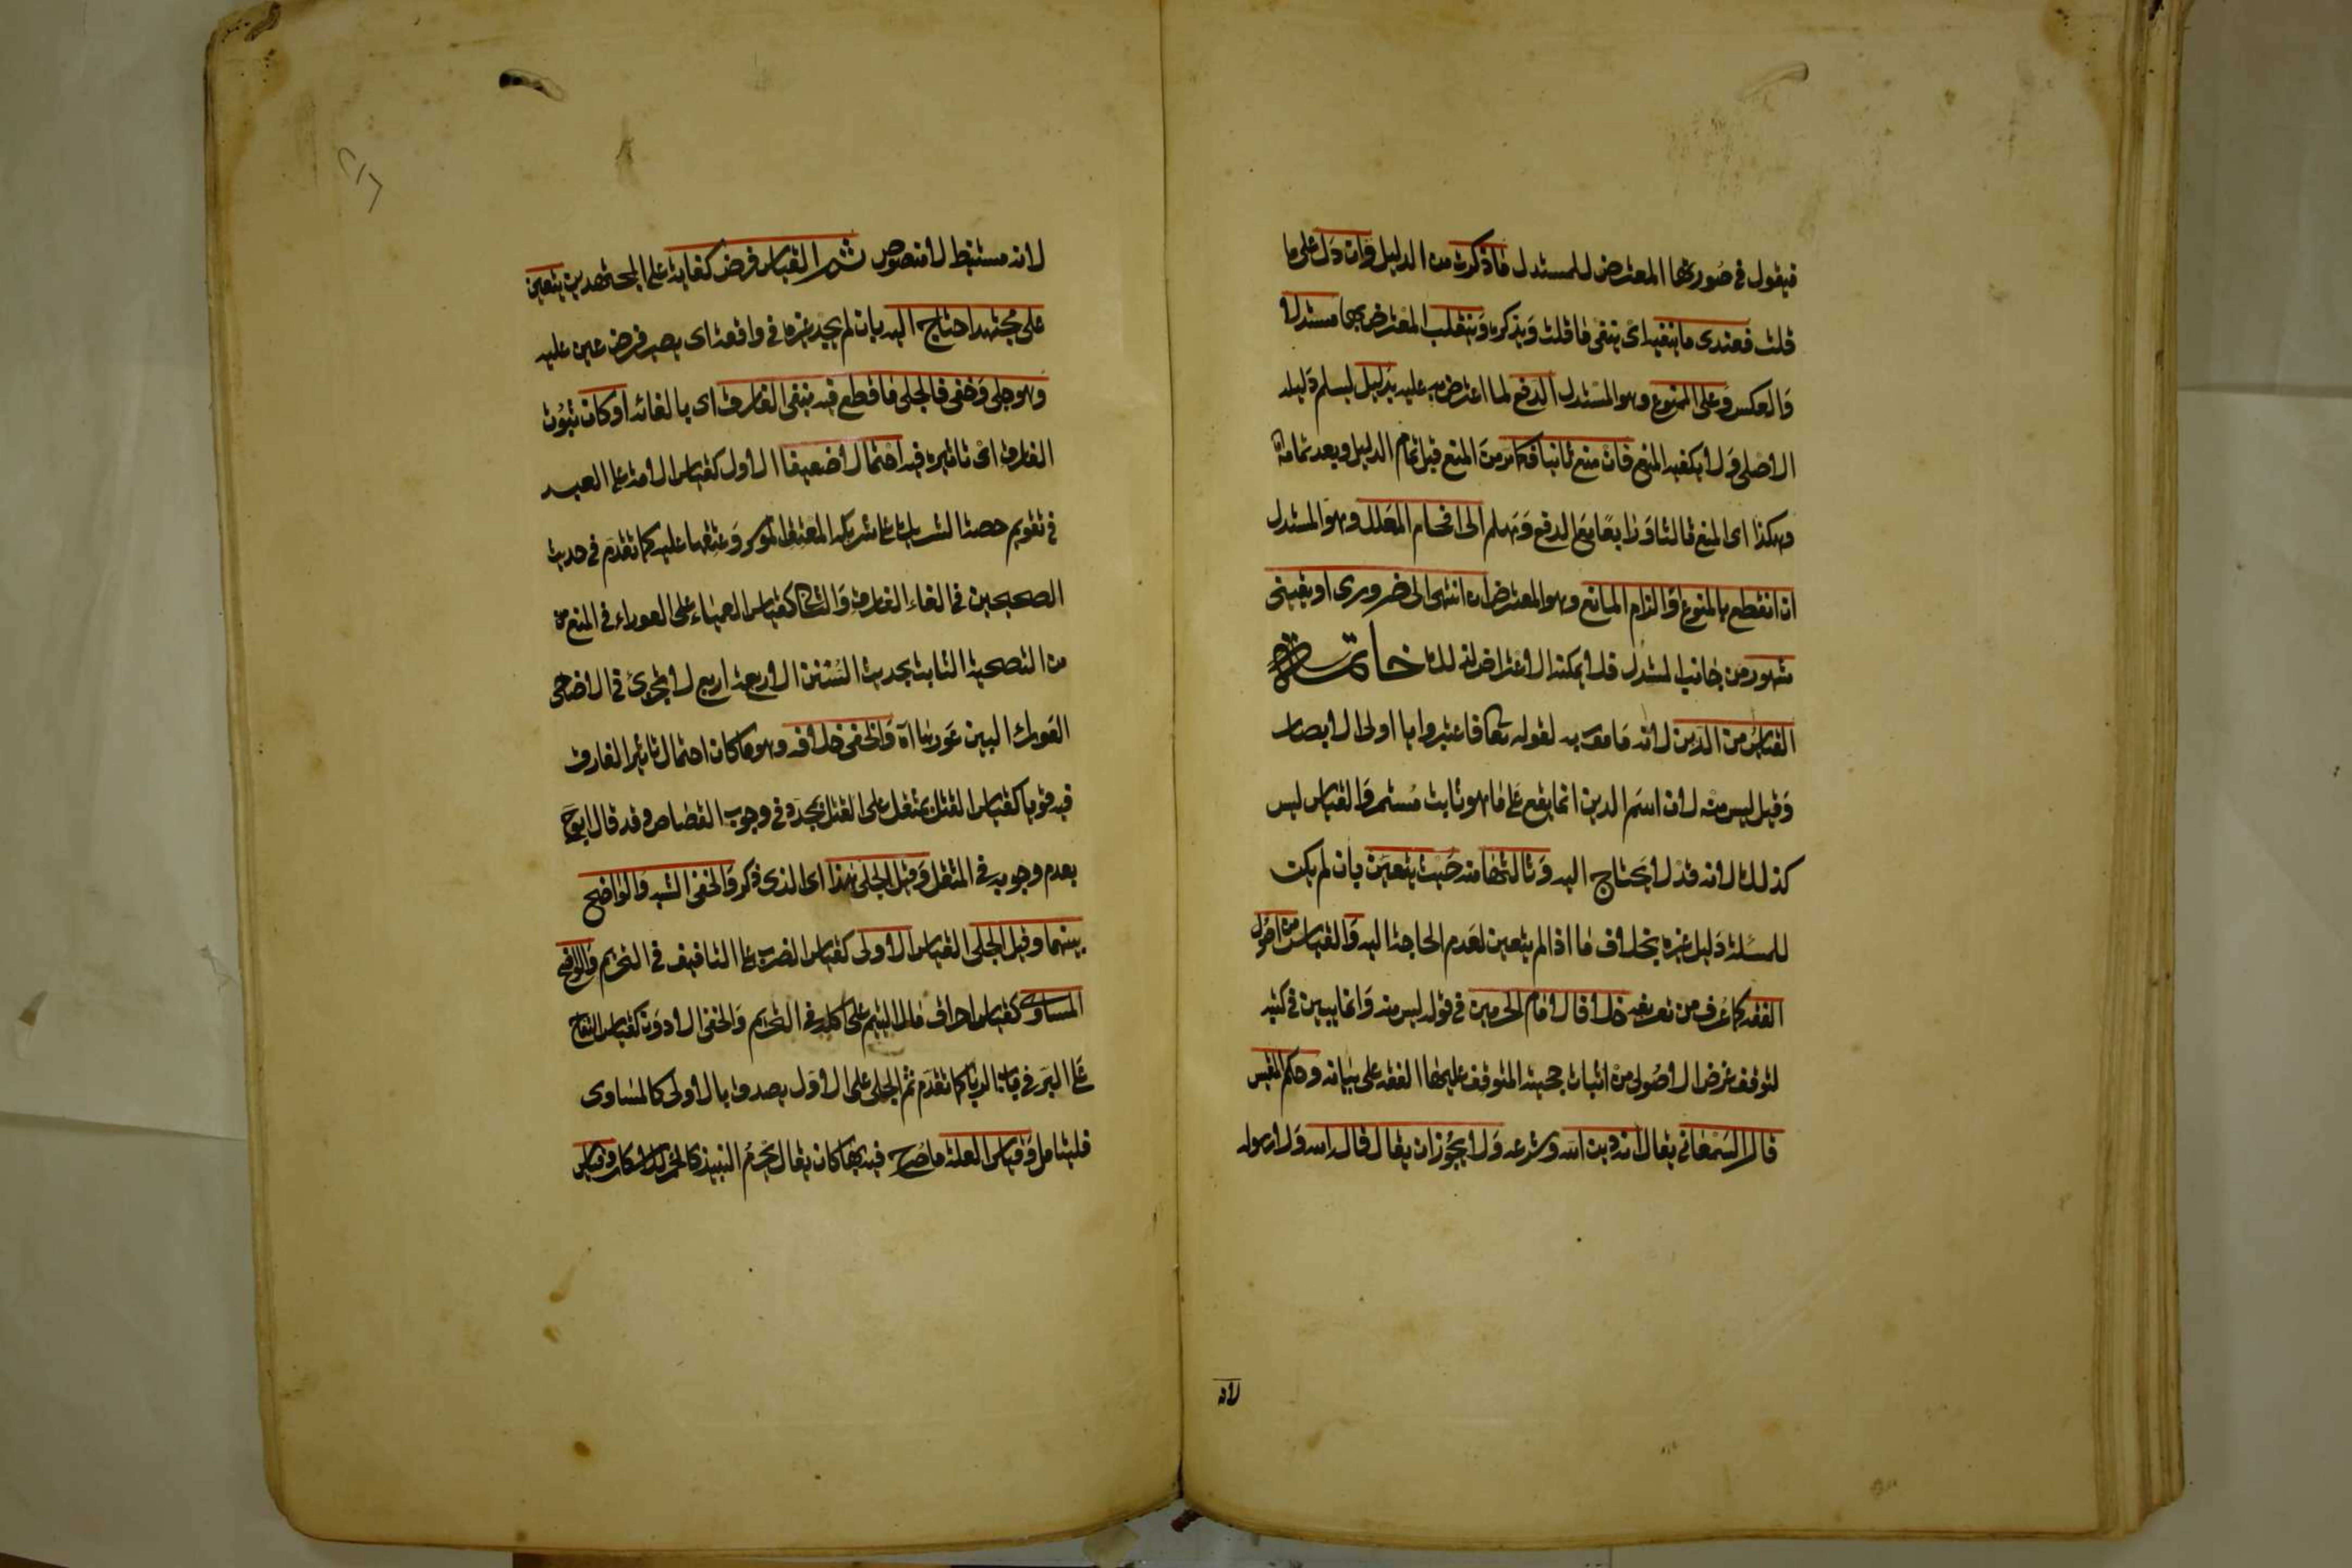 فيقول في صورتها المعترض للمستدل ما ذكرت من الدليل وان دل على ما
قلت فعندي ما ينفيه اى ينفى ما قلت ويذكره وينقلب المعترض بها مستدلا
والعكس وعلى الممنوع وهو المستدل الدفع لما اعترض به عليه بدليل ليسلم دليله
الاصلى ولا يكفيه المنع فان منع ثانيا فكما مر من المنع قبل تمام الدليل وبعد تمامه
وهكذا اى المنع ثالثا ورابعا مع الدفع وهلم الى افحام المعلل وهو المستدل
ان انقطع بالمنوع او الزام المانع وهو المعترض ان انتهى الى ضرورى او يقينى
مشهور من جانب المستدل فلا يمكنه الاعتراض لذلك خاتمة
القياس من الدين لانه مامور به لقوله تعا فاعتبروا يا اولى الابصار
وقيل ليس منه لان اسم الدين انما يقع على ما هو ثابت مستمر والقياس ليس
كذلك لانه قد لا يحتاج اليه وثالثها منه حيث يتعين بان لم يكن
للمسئلة دليل غيره بخلاف ما اذا لم يتعين لعدم الحاجة اليه والقياس من اصول
الفقه كما عرف من تعريفه خلافا لامام الحرمين في قوله ليس منه وانما يبين في كتبه
لتوقف غرض الاصولى من اثبات حجيته المتوقف عليها الفقه على بيانه وحكم المقيس
قال السمعانى يقال انه دين الله وشرعه ولا يجوز ان يقال قال الله ولا رسوله
لانه
لانه مستنبط لا منصوص ثم القياس فرض كفاية على المجتهدين يتعين
على مجتهد احتاج اليه بان لم يجد غيره في واقعة اى يصير فرض عين عليه
وهو جلى وخفى فالجلى ما قطع فيه بنفى الفارق اى بالغائه او كان ثبوت
الفارق اى تاثيره فيه احتمالا ضعيفا الاول كقياس الامة على العبد
في تقويم حصة الشريك على شريكه المعتق الموسر وعتقها عليه كما تقدم في حديث
الصحيحين في الغاء الفارق والثانى كقياس العمياء على العوراء في المنع من
من التضحية الثابت بحديث السنن الاربعة اربع لا تجزئ في الاضاحى
العوراء البين عورها اه والخفى خلافه وهو ما كان احتمال تاثير الفارق
فيه قويا كقياس القتل بمثقل على القتل بمحدد في وجوب القصاص وقد قال ابوح
بعدم وجوبه في المثقل وقيل الجلى هذا اى الذى ذكر والخفى الشبه والواضح
بينهما وقيل الجلى القياس الاولى كقياس الضرب على التافيف في التحريم والواضح
المساوى كقياس احراق مال اليتيم على اكله في التحريم والخفى الادون كقياس التفاح
على البر في باب الربا كما تقدم ثم الجلى على الاول يصدق بالاولى كالمساوى
فليتامل وقياس العلة ما صرح فيه بها كان يقال يحرم النبيذ كالخمر للاسكار وقياس